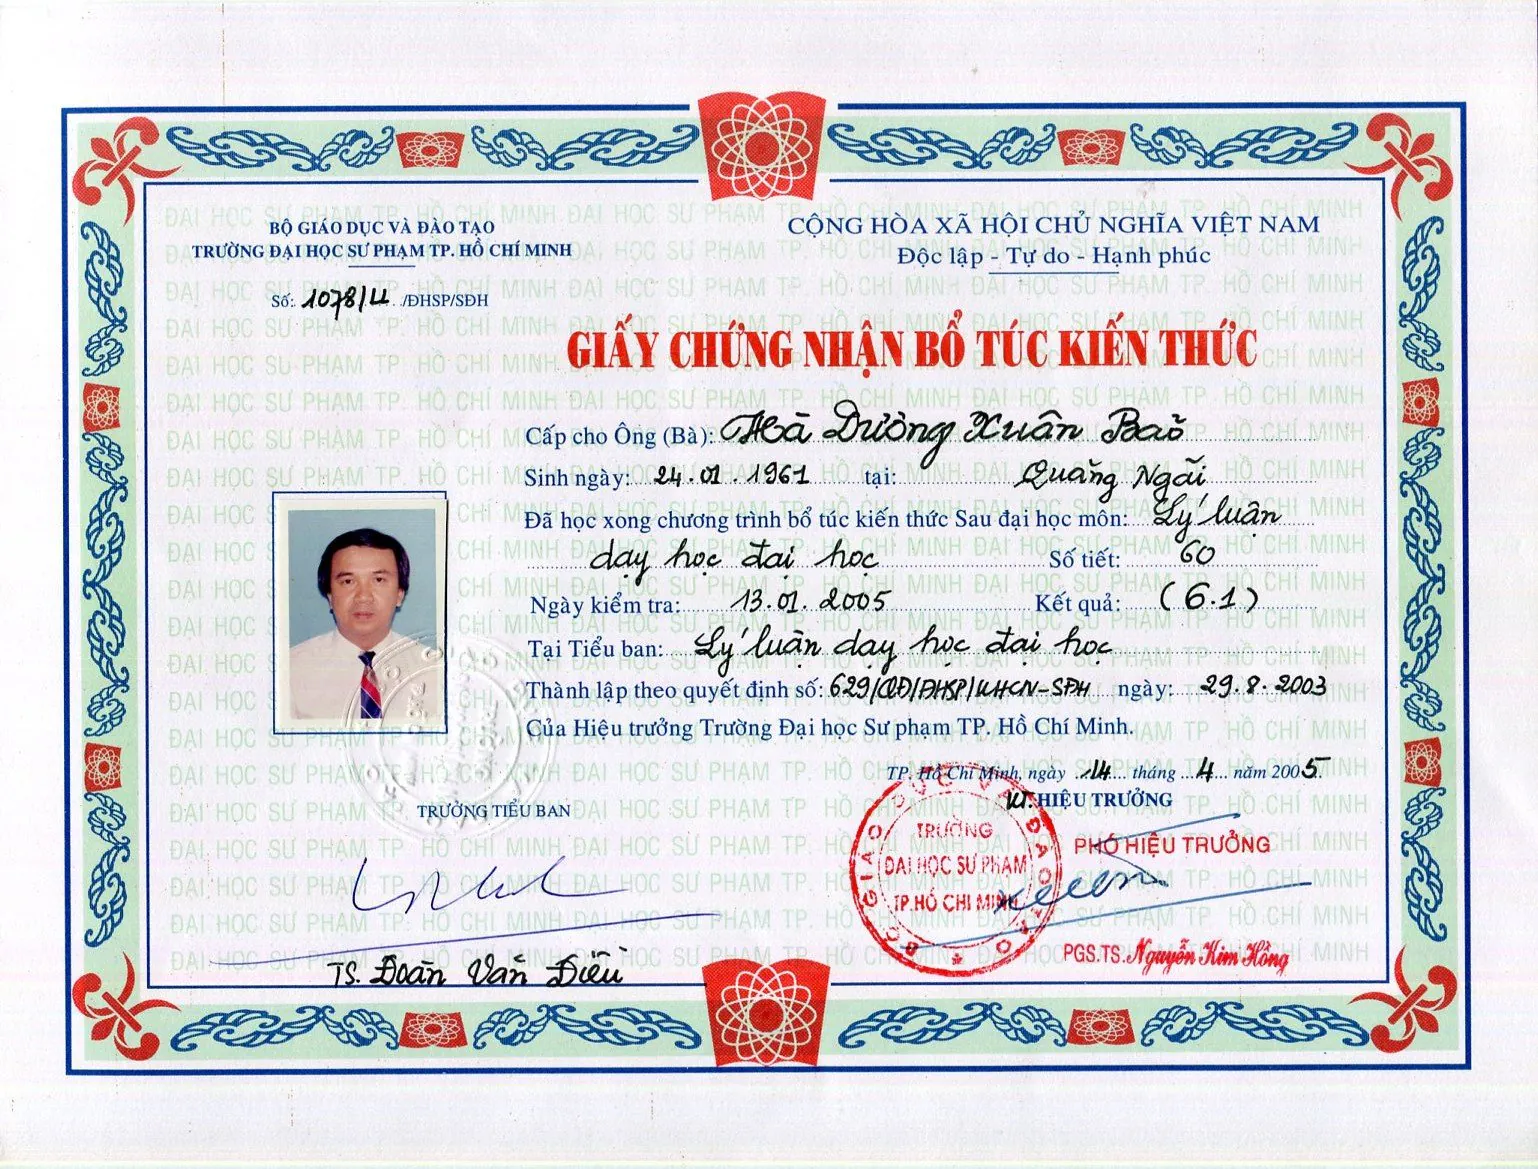 BỘ GIÁO DỤC VÀ ĐÀO TẠO
TRƯỜNG ĐẠI HỌC SƯ PHẠM TP. HỒ CHÍ MINH
Số: 1078/4 /ĐHSP/SĐH
CỘNG HÒA XÃ HỘI CHỦ NGHĨA VIỆT NAM
Độc lập - Tự do - Hạnh phúc
GIẤY CHỨNG NHẬN BỔ TÚC KIẾN THỨC
Cấp cho Ông (Bà): Hà Dường Xuân Bảo
Sinh ngày: 24.01.1961 tại: Quảng Ngãi
Đã học xong chương trình bổ túc kiến thức Sau đại học môn: Lý luận
dạy học đại học Số tiết: 60
Ngày kiểm tra: 13.01.2005 Kết quả: (6.1)
Tại Tiểu ban: Lý luận dạy học đại học
Thành lập theo quyết định số: 629/QĐ/ĐHSP/KHCN-SĐH ngày: 29.8.2003
Của Hiệu trưởng Trường Đại học Sư phạm TP. Hồ Chí Minh.
TP. Hồ Chí Minh, ngày 14 tháng 4 năm 2005.
KT. HIỆU TRƯỞNG
PHÓ HIỆU TRƯỞNG
TRƯỞNG TIỂU BAN
BỘ GIÁO DỤC VÀ ĐÀO TẠO
TRƯỜNG
ĐẠI HỌC SƯ PHẠM
TP.HỒ CHÍ MINH
PGS.TS. Nguyễn Kim Hồng
TS. Đoàn Văn Điều